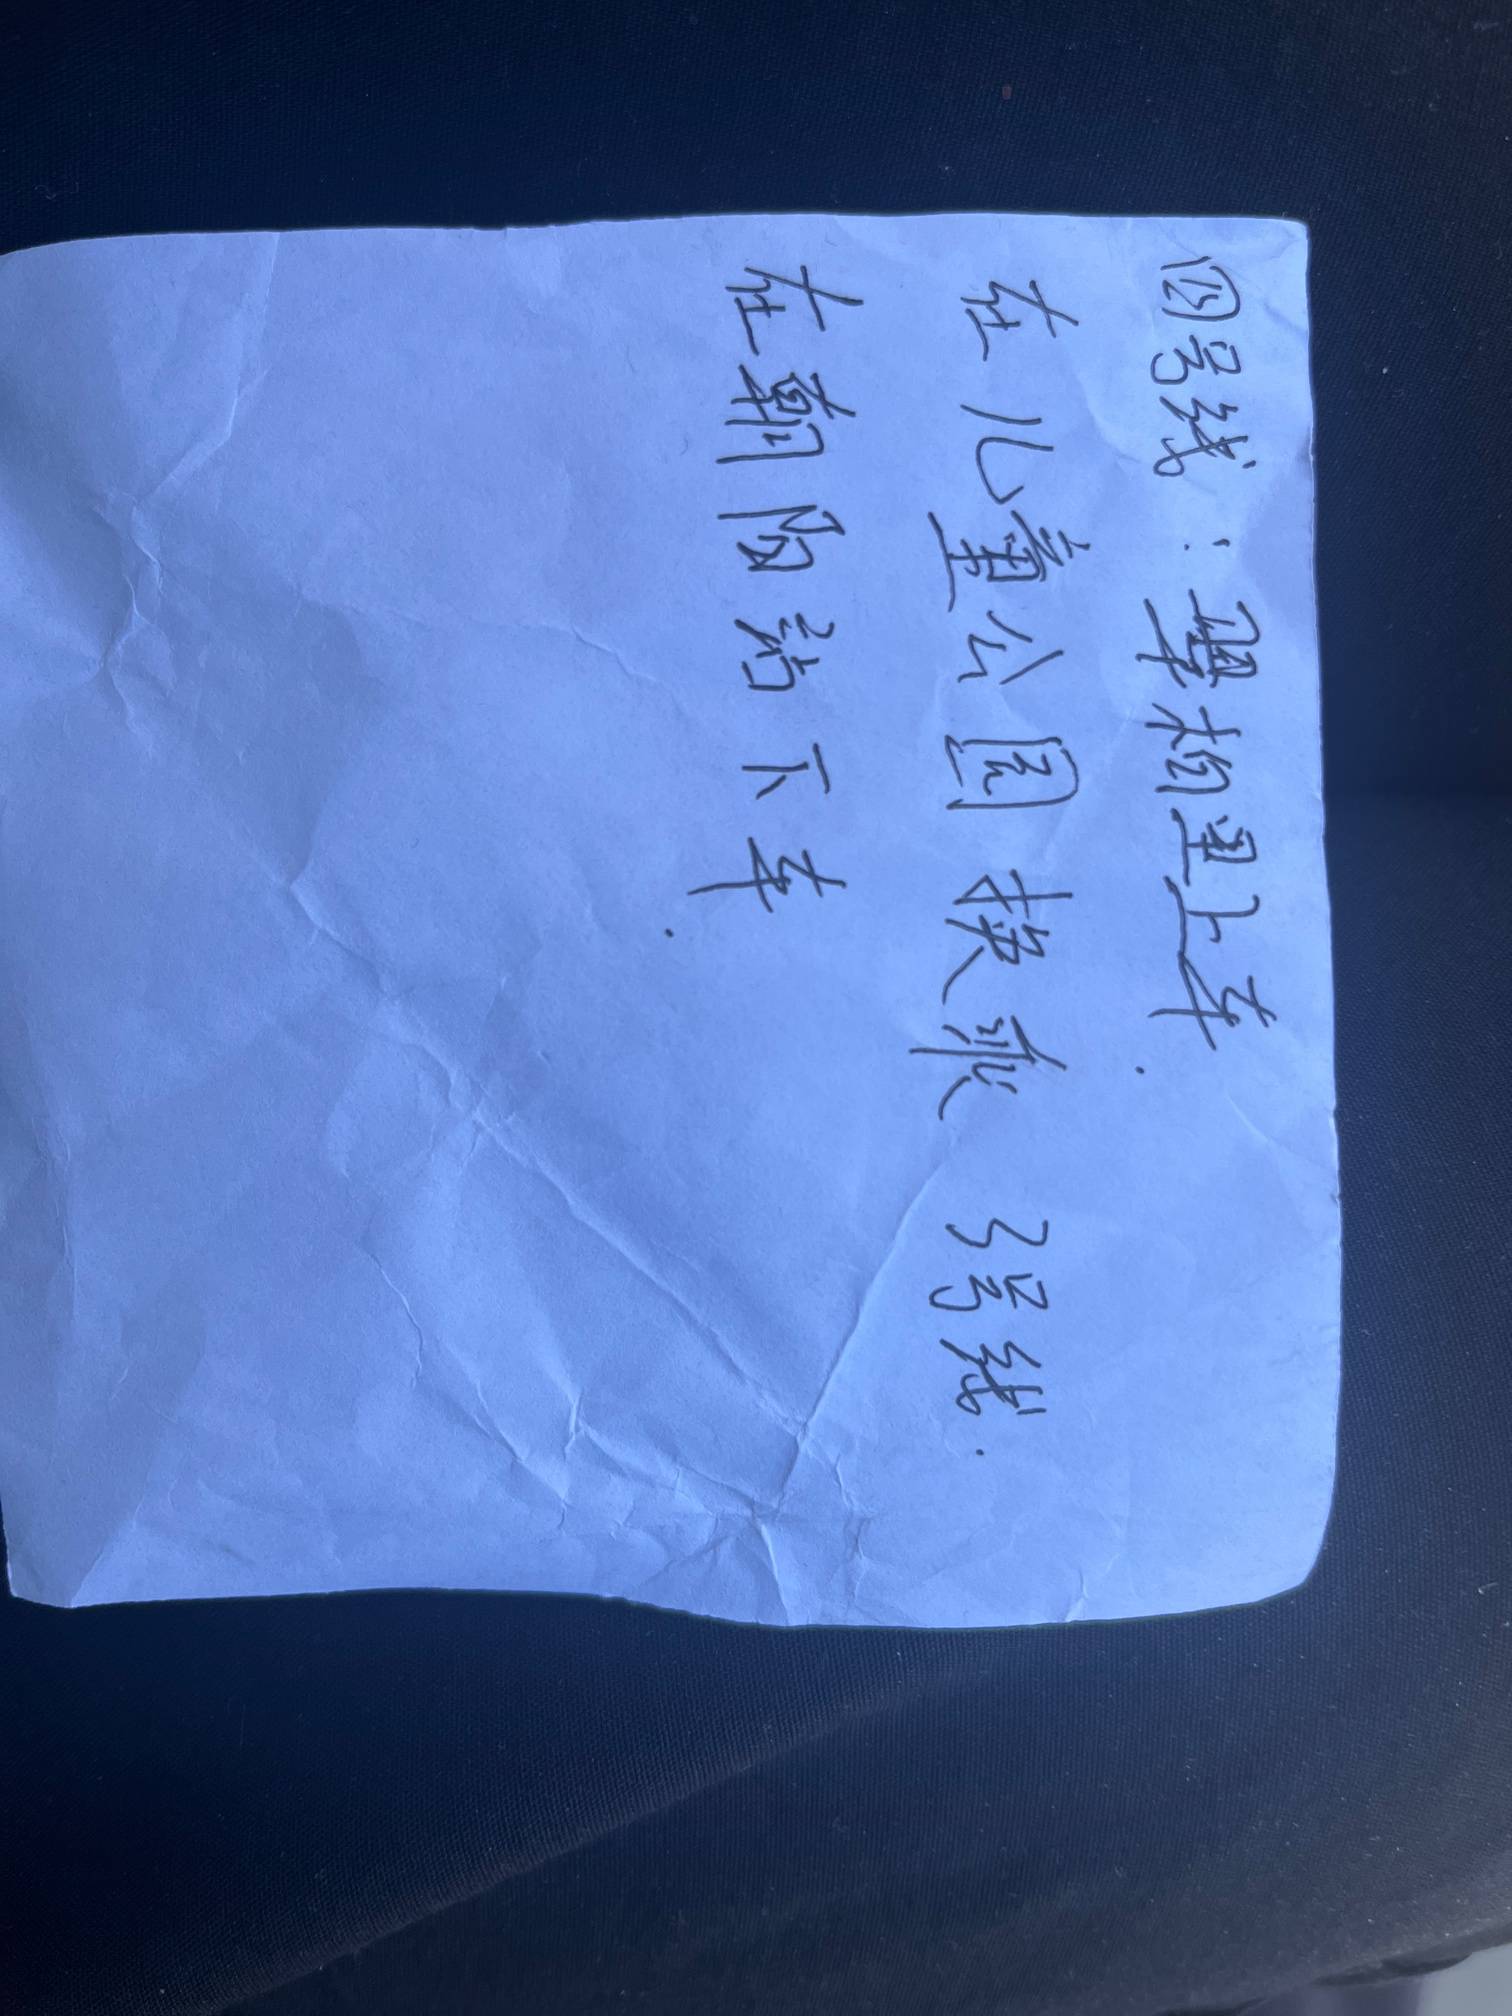 四号线:翠柏里上车.
在儿童公园换乘 3号线.
在朝阳站下车.